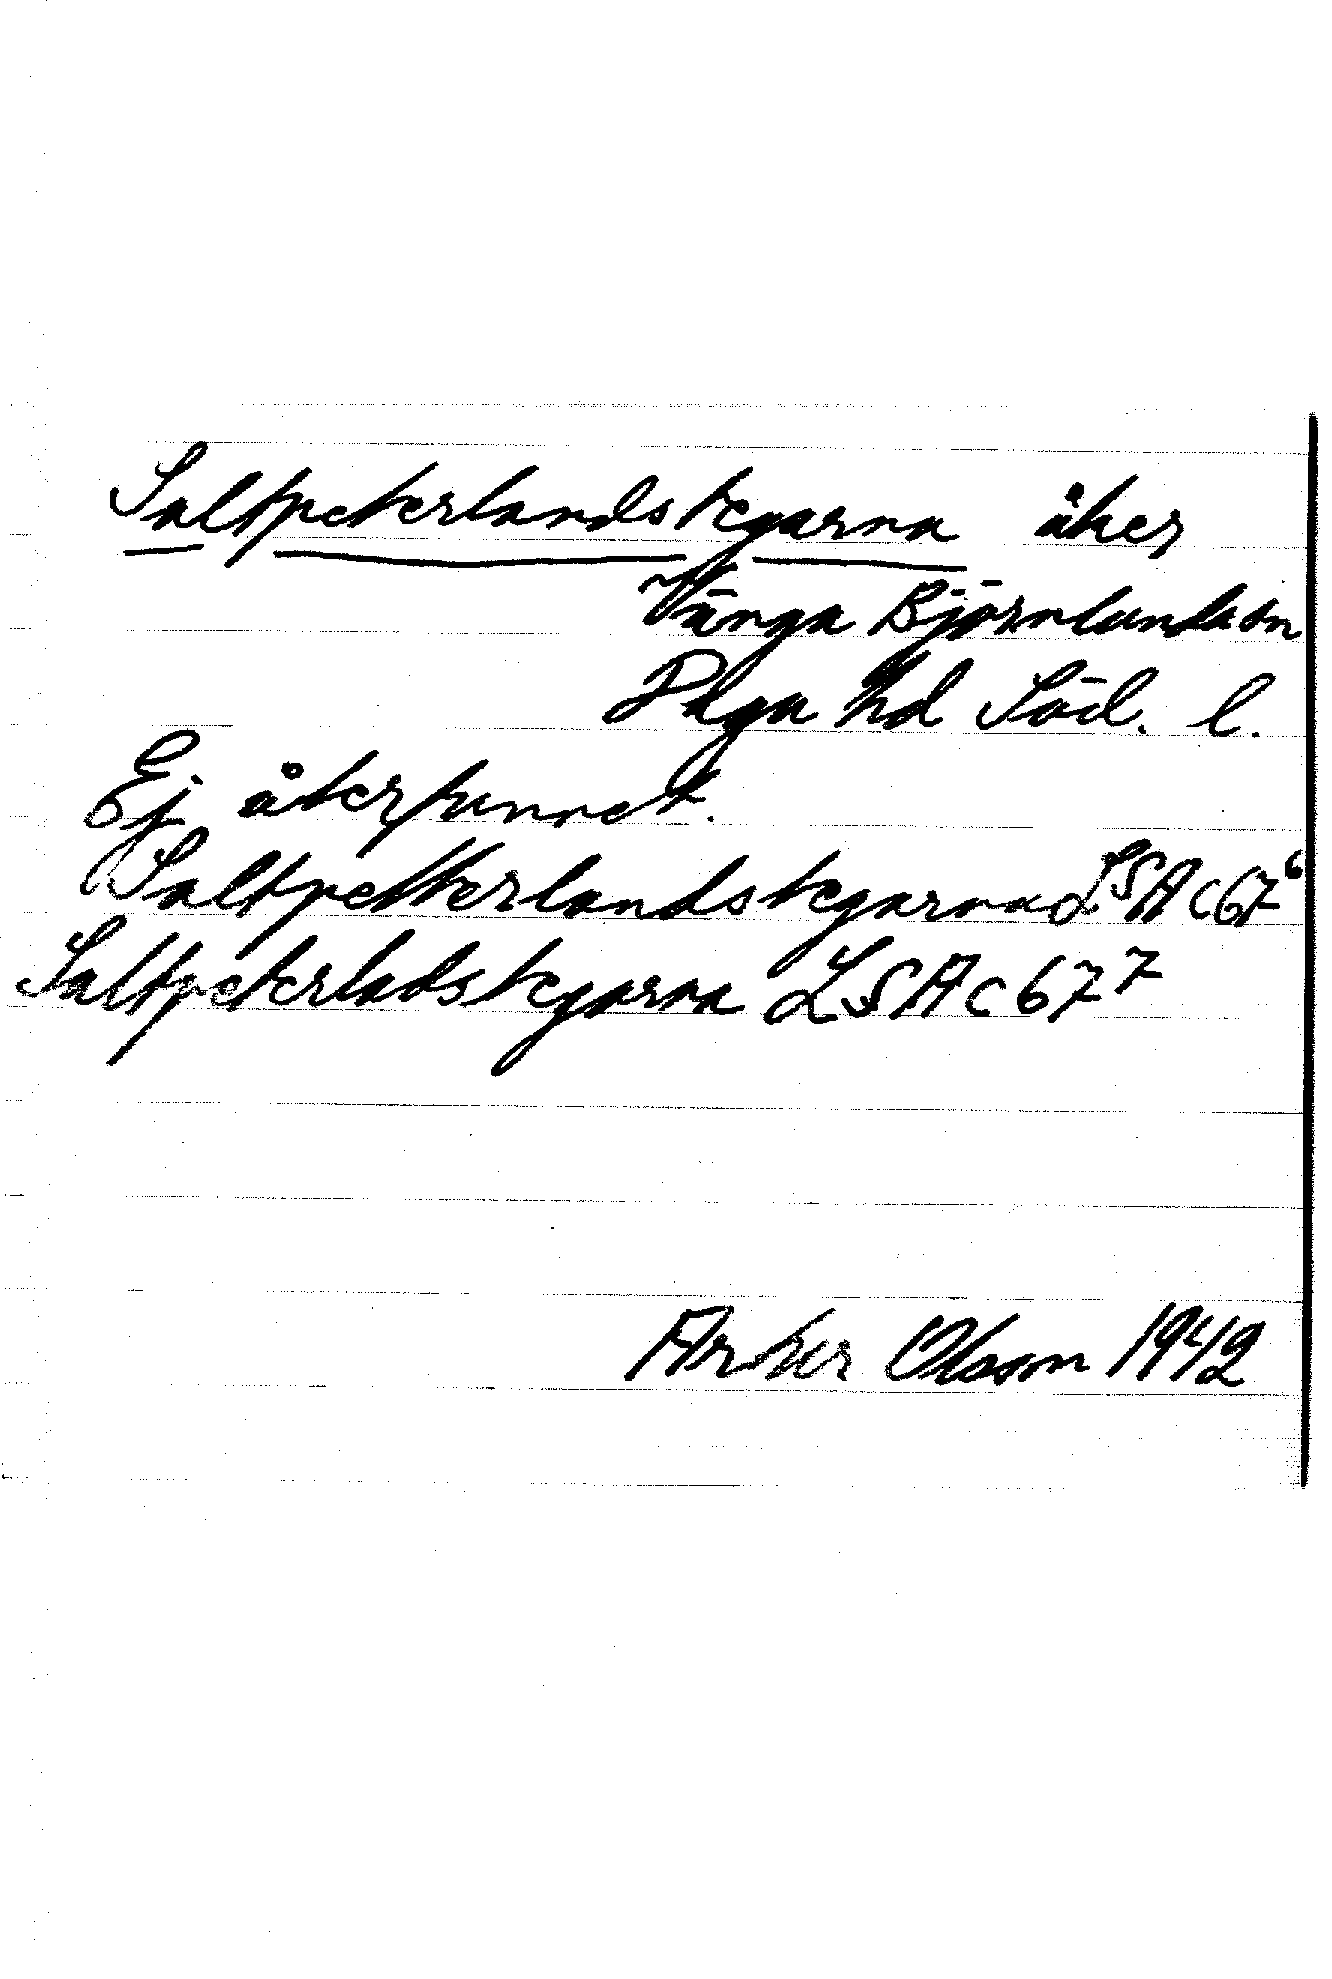 Saltpeterlandstegarna åker
Vänga Björnlunda sn
Daga hd Söd. l.
Ej återfunnet.
Saltpetterlandstegarna LSA C67⁶
Saltpeterladstegarna LSA C 67⁷
Olsson 1942